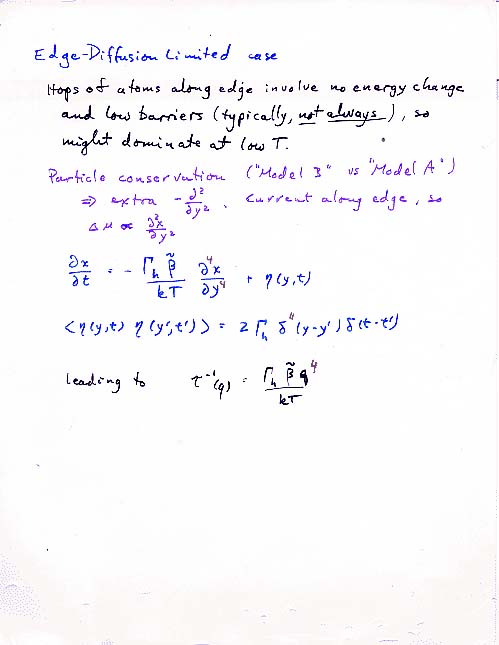 Edge-Diffusion Limited case
Hops of atoms along edge involve no energy change
and low barriers (typically, not always), so
might dominate at low T.
Particle conservation ("Model B" vs "Model A")
⇒ extra -∂²/∂y². Current along edge, so
Δμ ∝ ∂²x/∂y²
∂x/∂t = - Γₕ β̃/kT ∂⁴x/∂y⁴ + η(y,t)
<η(y,t) η(y',t')> = 2 Γₕ δ⁴(y-y') δ(t-t')
leading to τ⁻¹(q) = Γₕ β̃ q⁴/kT